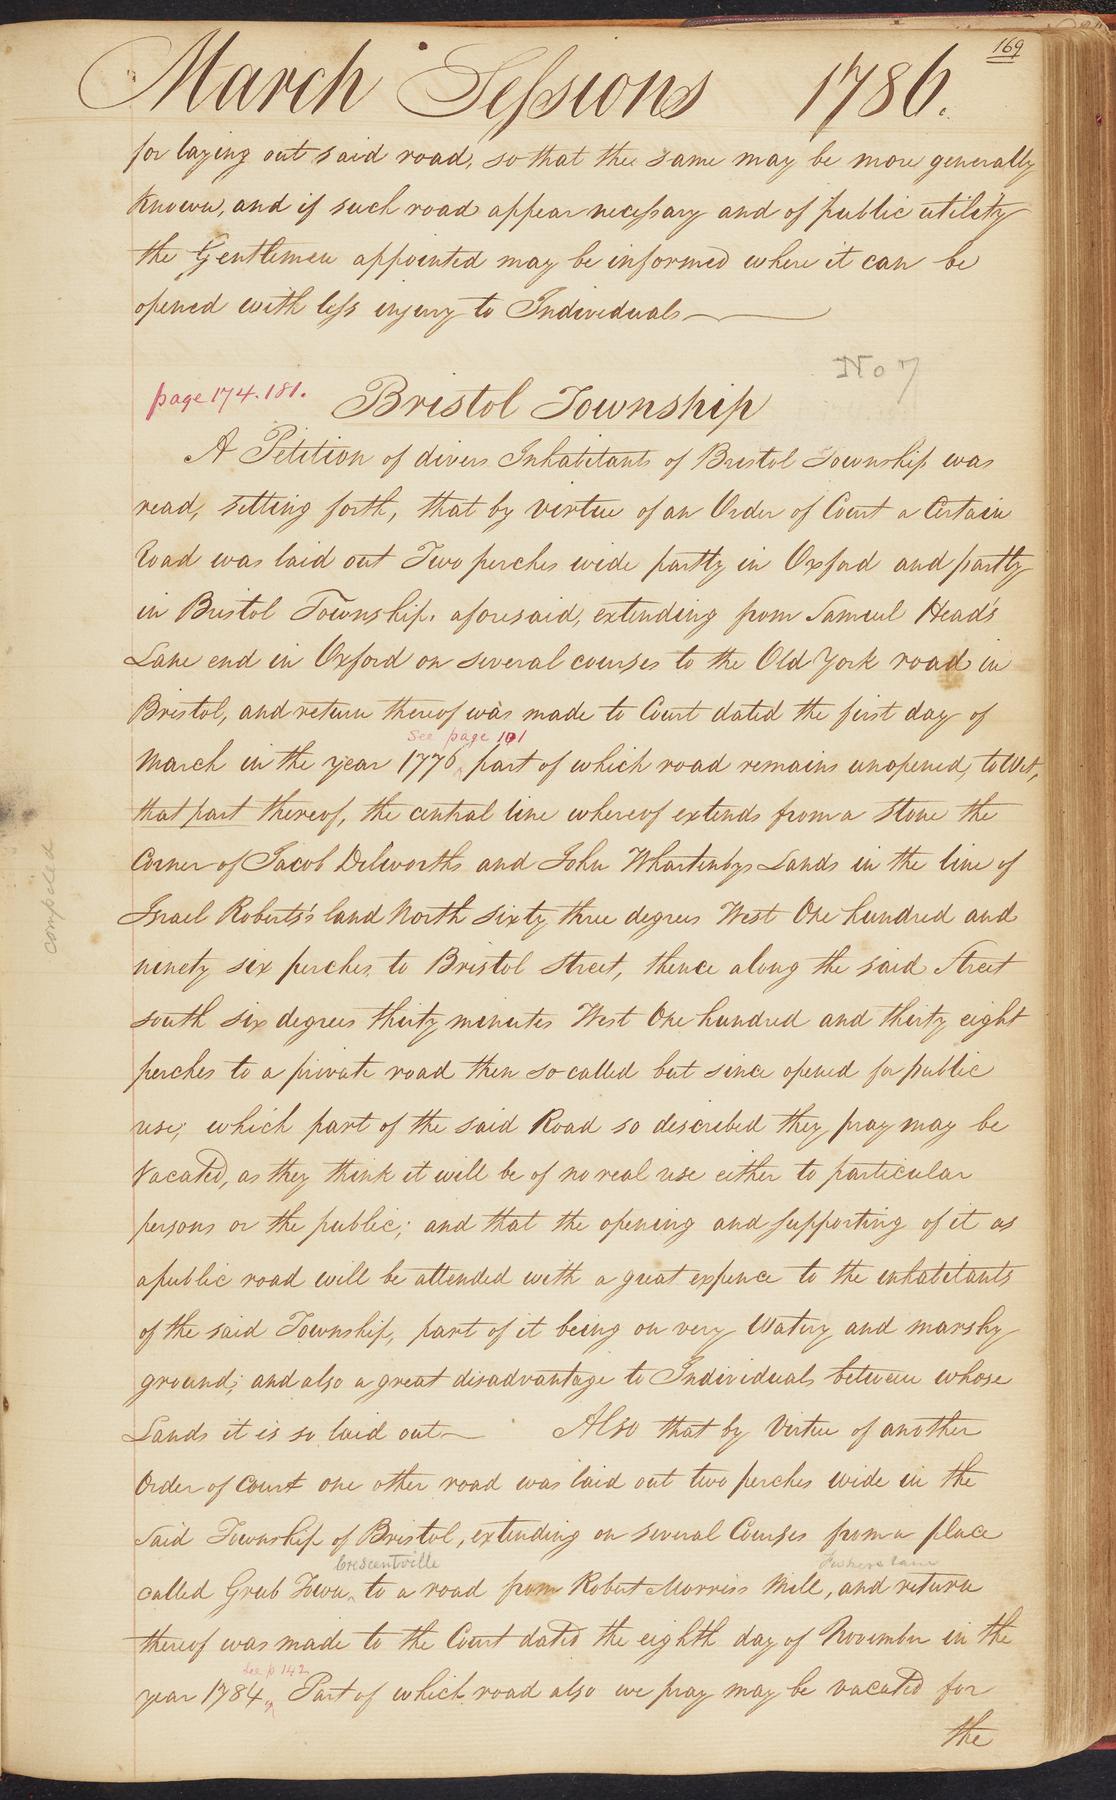 169
March Sessions 1786.
for laying out said road, so that the same may be more generally
known, and if such road appear necessary and of public utility
the Gentlemen appointed may be informed where it can be
opened with less injury to Individuals
No 7
page 174. 181.
Bristol Township
A Petition of divers Inhabitants of Bristol Township was
read, setting forth, that by virtue of an Order of Court a Certain
Road was laid out Two perches wide partly in Oxford and partly
in Bristol Township. aforesaid, extending from Samuel Head's
Lane end in Oxford on several courses to the Old York road in
Bristol, and return thereof was made to Court dated the first day of
see page 101
March in the year 1776, part of which road remains unopened, to Wit,
that part thereof, the central line whereof extends from a Stone the
Corner of Jacob Dilworths and John Whartenbys Lands in the line of
compiled
Israel Roberts's land North sixty three degrees West One hundred and
ninety six perches, to Bristol Street, thence along the said Street
south six degrees thirty minutes West One hundred and thirty eight
perches to a private road then so called but since opened for public
use; which part of the said Road so described they pray may be
Vacated, as they think it will be of no real use either to particular
persons or the public; and that the opening and supporting of it as
a public road will be attended with a great expence to the inhabitants
of the said Township, part of it being on very Watery and marshy
ground; and also a great disadvantage to Individuals between whose
Lands it is so laid out Also that by Virtue of another
Order of Court one other road was laid out two perches wide in the
Said Township of Bristol, extending on several Courses from a place
Crescentville Fishers lane
called Grub Town, to a road from Robert Morriss Mill, and return
thereof was made to the Court dated the eighth day of November in the
See p 142
year 1784, Part of which road also we pray may be vacated for
the